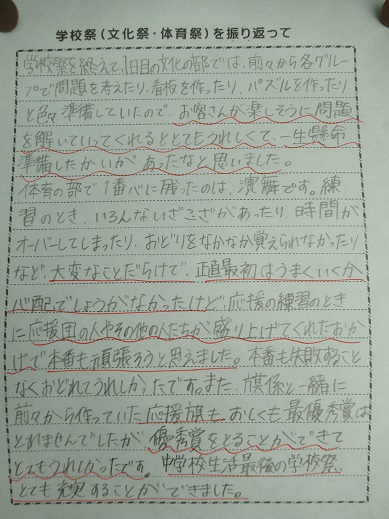 学校祭(文化祭・体育祭)を振り返って
学校祭を終えて、1日目の文化の部では、前々から各グルー
プで問題を考えたり、看板を作ったり、パズルを作ったり
と色々準備していたので、お客さんが楽しそうに問題
を解いていってくれるととてもうれしくて、一生懸命
準備したかいがあったなと思いました。
体育の部で1番心に残ったのは、演舞です。練
習のとき、いろんないざこざがあったり、時間が
オーバーしてしまったり、おどりをなかなか覚えられなかったり
など、大変なことだらけで、正直最初はうまくいくか
心配でしょうがなかったけど、応援の練習のとき
に応援団の人やその他の人たちが盛り上げてくれたおか
げで本番も頑張ろうと思えました。本番も失敗すること
なくおどれてうれしかったです。また、旗係と一緒に
前々から作っていた応援旗も、おしくも最優秀賞は
とれませんでしたが、優秀賞をとることができて
とてもうれしかったです。中学校生活最後の学校祭、
とても充実することができました。